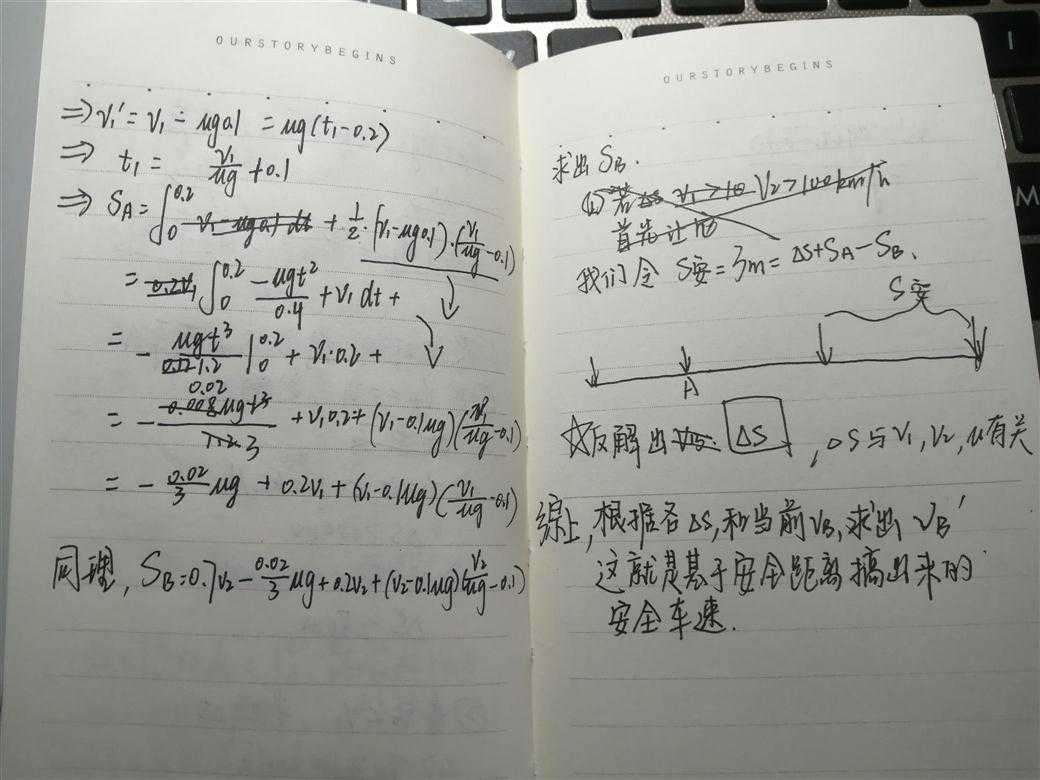 OURSTORYBEGINS
⇒ v₁' = v₁ - μg0.1 = μg(t₁-0.2)
⇒ t₁ = v₁/μg + 0.1
⇒ S_A = ∫₀^0.2 v₁-μg0.1 dt + 1/2·(v₁-μg0.1)·(v₁/μg-0.1)
= 0.2v₁ ∫₀^0.2 -μgt²/0.4 + v₁ dt +
= - μgt³/1.2 |₀^0.2 + v₁·0.2 +
= - 0.02/3 + v₁0.2 + (v₁-0.1μg)(v₁/μg-0.1)
= - 0.02/3 μg + 0.2v₁ + (v₁-0.1μg)(v₁/μg-0.1)
同理, S_B=0.7v₂ - 0.02/3 μg+0.2v₂+(v₂-0.1μg)(v₂/μg-0.1)
OURSTORYBEGINS
求出 S_B.
若 v₁>10 V₂>100km/h
首先让
我们令 S安=3m=ΔS+S_A-S_B.
S安
A
☆反解出 ΔS , ΔS与V₁,V₂,μ有关
综上,根据各ΔS,和当前V_B,求出 V_B'
这就是基于安全距离搞出来的
安全车速.